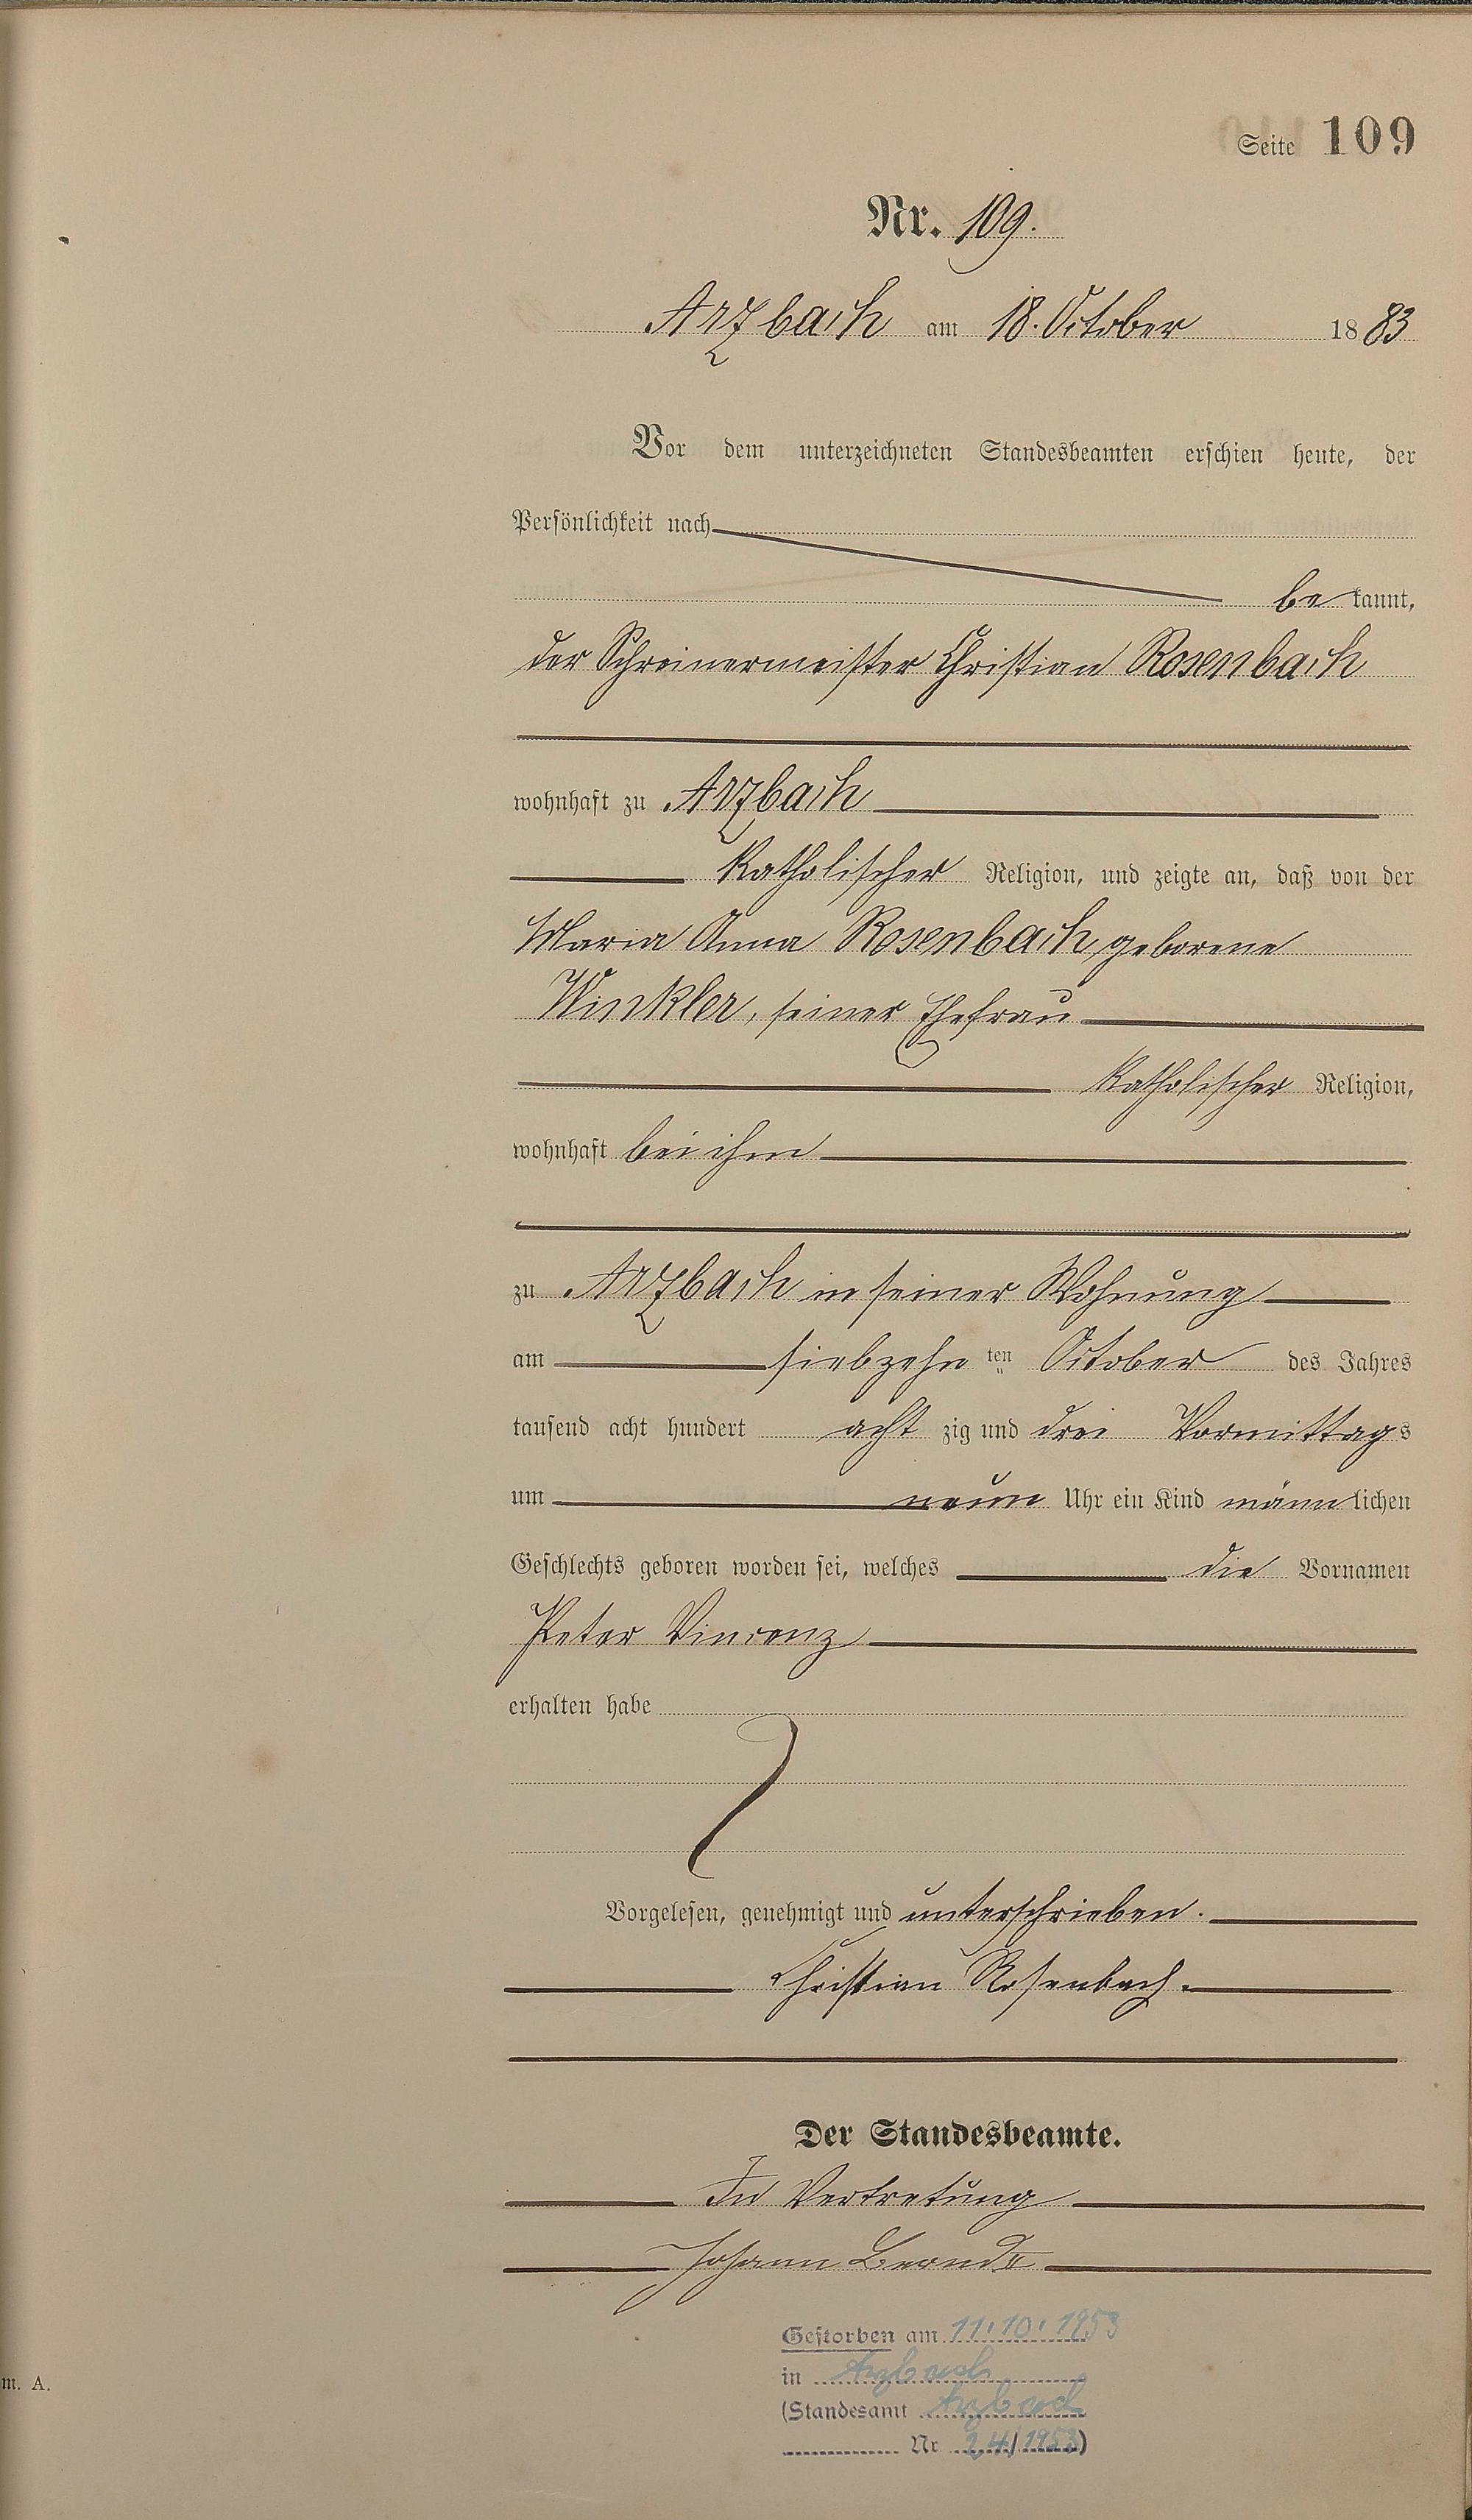 Seite 109
Nr. 109.
Arzbach am 18. October 1883
Vor dem unterzeichneten Standesbeamten erschien heute, der
Persönlichkeit nach
be kannt,
der Schreinermeister Christian Rosenbach
wohnhaft zu Arzbach
katholischer Religion, und zeigte an, daß von der
Maria Anna Rosenbach geborene
Winkler, seiner Ehefrau
katholischer Religion,
wohnhaft bei ihm
zu Arzbach in seiner Wohnung
am siebzehn ten October des Jahres
tausend acht hundert acht zig und drei Vormittags
um neun Uhr ein Kind männlichen
Geschlechts geboren worden sei, welches die Vornamen
Peter Vincenz
erhalten habe
Vorgelesen, genehmigt und unterschrieben.
Christian Rosenbach.
Der Standesbeamte.
In Vertretung
Johann
Gestorben am 11.10.1953
in Arzbach
(Standesamt Arzbach
Nr 24/1953)
m. A.